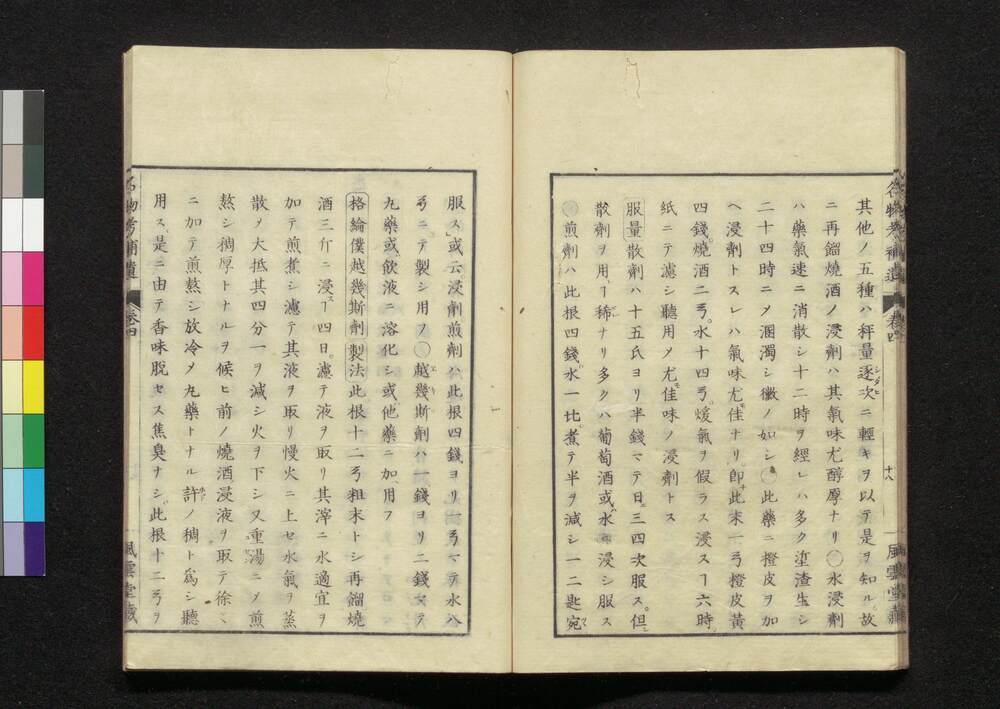 其他ノ五種ハ秤量逐次ニ輕キヲ以テ是ヲ知ル故
ニ再餾燒酒ノ浸劑ハ其氣味尤醇厚ナリ〇水浸劑
ハ藥氣速ニ消散シ十二時ヲ經レハ多ク渣生シ
二十四時ニメ溷濁シ黴ノ如シ〇此藥ニ橙皮ヲ加
ヘ浸劑トスレハ氣味尤佳ナリ卽此末一弓橙皮黃
四錢燒酒二弓水十四弓煖氣ヲ假ラス浸スヿ六時
紙ニテ濾シ聽用メ尤佳味ノ浸劑トス
服量散劑ハ十五氏ヨリ半錢マテ日三四次服ス但
散劑ヲ用ヿ稀ナリ多クハ葡萄酒或水浸シ服ス
〇煎劑ハ此根四錢水一比煮テ半ヲ減シ一二匙宛
服ス或云浸劑煎劑ハ此根四錢ヨリ一弓マテ水八
弓ニテ製シ用フ〇越幾斯劑ハ一錢ヨリ二錢マテ
丸藥或飮液ニ溶化シ或他藥ニ加用フ
格綸僕越幾斯劑製法此根十二弓粗末トシ再餾燒
酒三斤ニ浸スヿ四日濾テ液ヲ取リ其滓ニ水適宜ヲ
加テ煎煮シ濾テ其液ヲ取リ慢火ニ上セ水氣ヲ蒸
散メ大抵其四分一ヲ減シ火ヲ下シ又重湯ニメ煎
熬シ稠厚トナルヲ候ヒ前ノ燒酒浸液ヲ取テ徐々
ニ加テ煎熬シ放冷メ丸藥トナル許ノ稠ト爲シ聽
用ス是ニ由テ香味脫セス焦臭ナシ此根十二弓ヲ
名物考補遺
卷四
十八
風雲堂藏